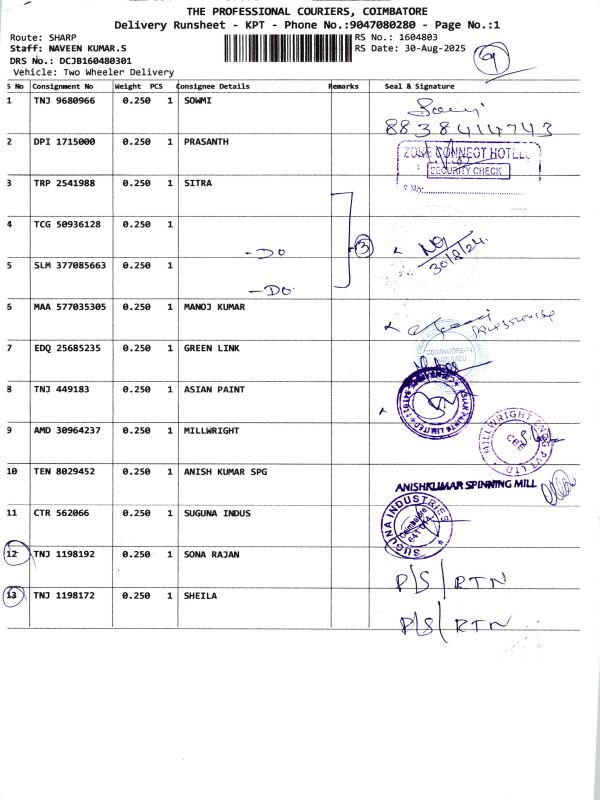 THE PROFESSIONAL COURIERS, COIMBATORE
Delivery Runsheet - KPT - Phone No.:9047080280 - Page No.:1
Route: SHARP
RS No.: 1604803
Staff: NAVEEN KUMAR.S
RS Date: 30-Aug-2025
9
DRS No.: DCJB160480301
Vehicle: Two Wheeler Delivery
S No Consignment No Weight PCS Consignee Details Remarks Seal & Signature
1 TNJ 9680966 0.250 1 SOWMI
8838414743
2 DPI 1715000 0.250 1 PRASANTH
ZONE CONNECT HOTEL
SECURITY CHECK
S No:
3 TRP 2541988 0.250 1 SITRA
4 TCG 50936128 0.250 1
- DO
3
30/8/24
5 SLM 377085663 0.250 1
- DO
6 MAA 577035305 0.250 1 MANOJ KUMAR
7 EDQ 25685235 0.250 1 GREEN LINK
COIMBATORE-14
8 TNJ 449183 0.250 1 ASIAN PAINT
ASIAN PAINTS LIMITED
9 AMD 30964237 0.250 1 MILLWRIGHT
MILLWRIGHT ENGG PVT LTD
CBE
10 TEN 8029452 0.250 1 ANISH KUMAR SPG
ANISHKUMAR SPINNING MILL
11 CTR 562066 0.250 1 SUGUNA INDUS
SUGUNA INDUSTRIES
Coimbatore
641 014
12 TNJ 1198192 0.250 1 SONA RAJAN
P/S/RTN
13 TNJ 1198172 0.250 1 SHEILA
P/S/RTN